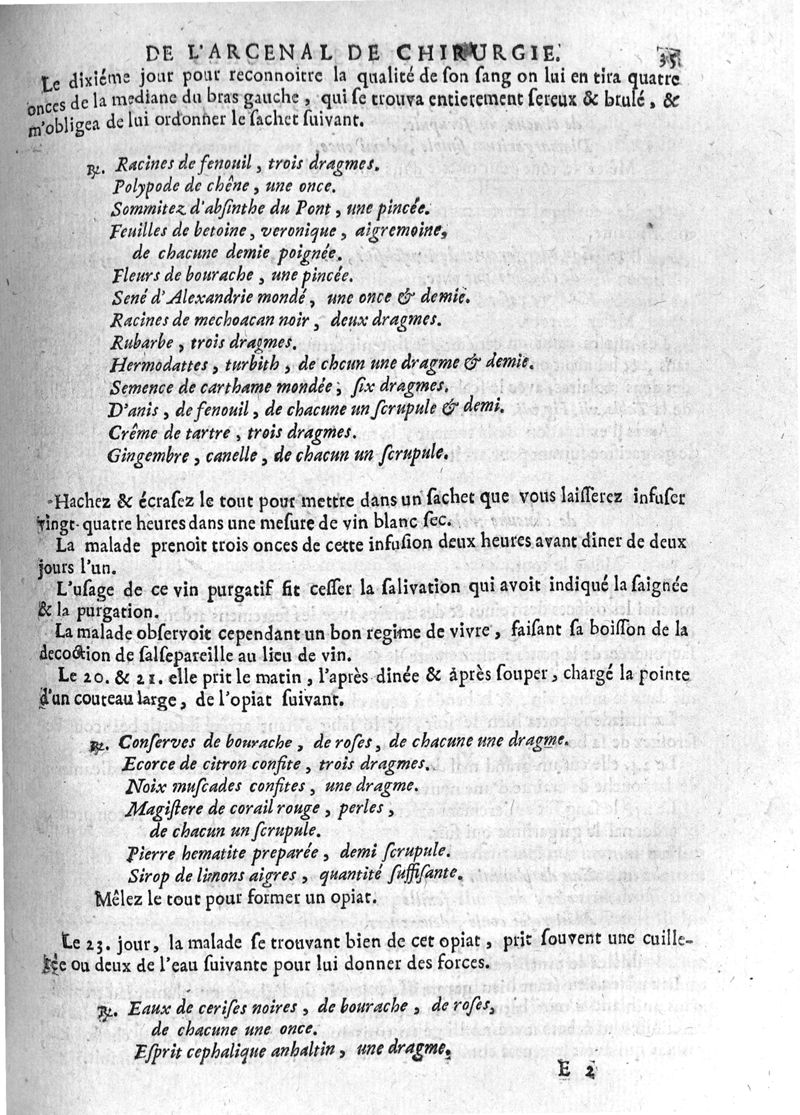 DE L'ARCENAL DE CHIRURGIE. 35
Le dixiéme jour pour reconnoitre la qualité de ſon ſang on lui en tira quatre
onces de la mediane du bras gauche, qui ſe trouva entierement ſereux & brulé, &
m'obligea de lui ordonner le ſachet ſuivant.
℞. Racines de fenouil, trois dragmes.
Polypode de chêne, une once.
Sommitez d'abſinthe du Pont, une pincée.
Feuilles de betoine, veronique, aigremoine,
de chacune demie poignée.
Fleurs de bourache, une pincée.
Sené d'Alexandrie mondé, une once & demie.
Racines de mechoacan noir, deux dragmes.
Rubarbe, trois dragmes.
Hermodattes, turbith, de chcun une dragme & demie.
Semence de carthame mondée; ſix dragmes.
D'anis, de fenouil, de chacune un ſcrupule & demi.
Crême de tartre, trois dragmes.
Gingembre, canelle, de chacun un ſcrupule.
Hachez & écraſez le tout pour mettre dans un ſachet que vous laiſſerez infuſer
vingt-quatre heures dans une meſure de vin blanc ſec.
La malade prenoit trois onces de cette infuſion deux heures avant dîner de deux
jours l'un.
L'uſage de ce vin purgatif fit ceſſer la ſalivation qui avoit indiqué la ſaignée
& la purgation.
La malade obſervoit cependant un bon regime de vivre, faiſant ſa boiſſon de la
decoction de ſalſepareille au lieu de vin.
Le 20. & 21. elle prit le matin, l'après dinée & après ſouper, chargé la pointe
d'un couteau large, de l'opiat ſuivant.
℞. Conſerves de bourache, de roſes, de chacune une dragme.
Ecorce de citron confite, trois dragmes.
Noix muſcades confites, une dragme.
Magiſtere de corail rouge, perles,
de chacun un ſcrupule.
Pierre hematite preparée, demi ſcrupule.
Sirop de limons aigres, quantité ſuffiſante.
Mêlez le tout pour former un opiat.
Le 23. jour, la malade ſe trouvant bien de cet opiat, prit ſouvent une cuille-
rée ou deux de l'eau ſuivante pour lui donner des forces.
℞. Eaux de ceriſes noires, de bourache, de roſes,
de chacune une once.
Eſprit cephalique anhaltin, une dragme.
E 2